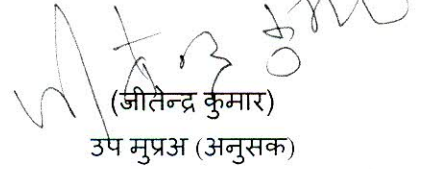 (जीतेन्द्र कुमार)
उप मुप्रअ (अनुसक)